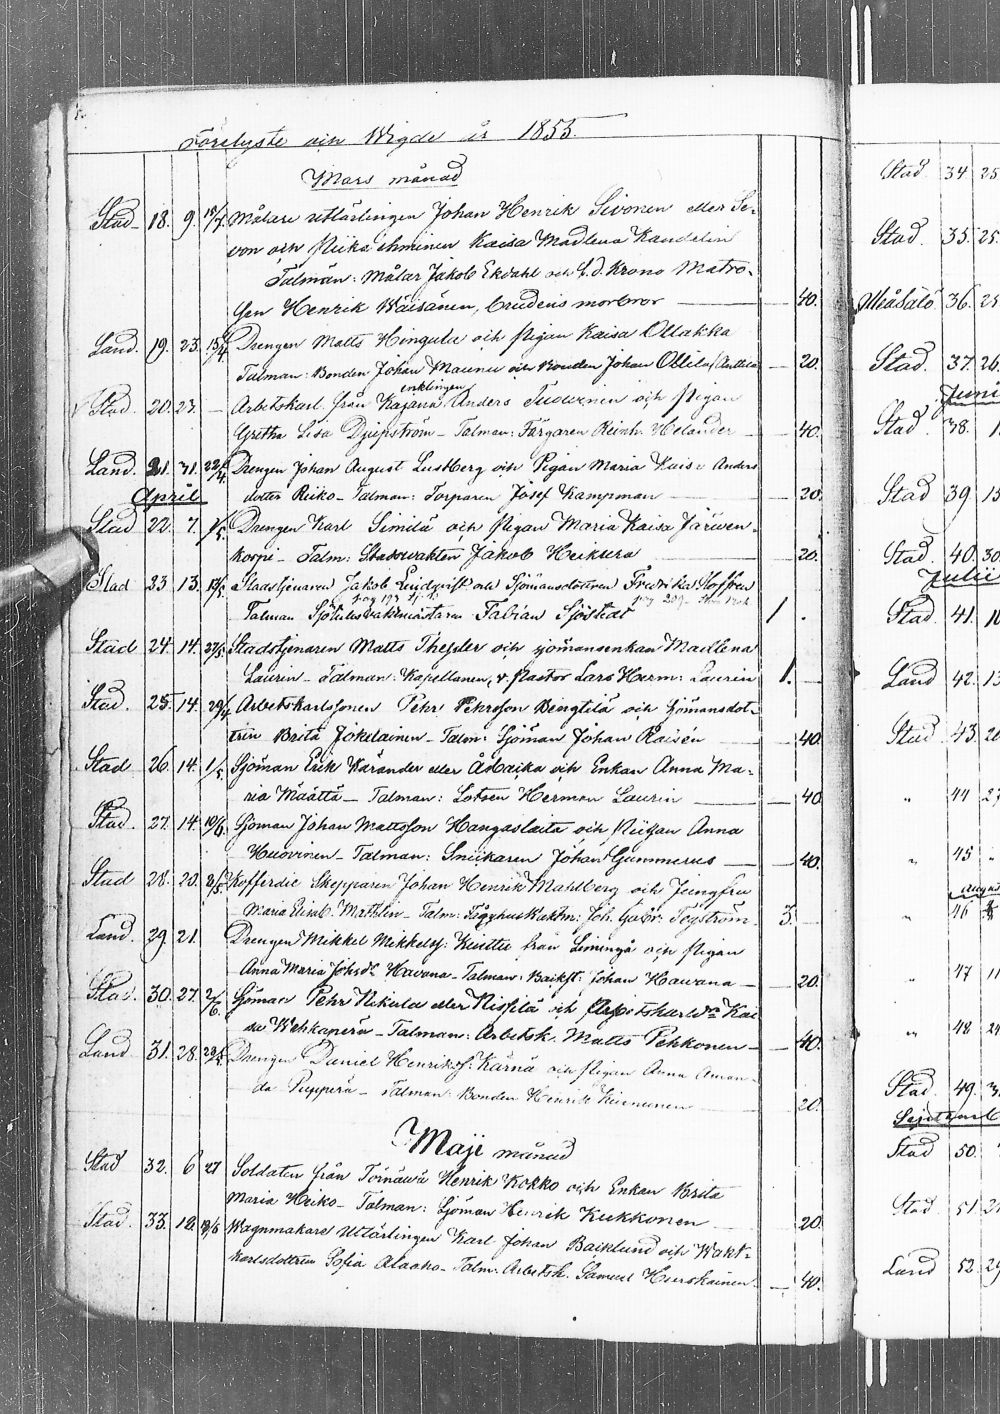 Förelyste och Wigde år 1855.
Mars månad
Stad 18. 9. Målare utlärlingen Johan Henrik Sivonen eller Se-
von och Pikaihminen Kaisa Madlena Kandelin
Talmän: Målar Jakob Ekdahl och f.d. Krono Matro-
sen Henrik Wäisänen, brudens morbror — 40.
Land. 19. 23. 15/4 Drengen Matts Hingula och Pigan Kaisa Ollakka
Talman: Bonden Johan Maunu och Bonden Johan Ollila — 20.
enklingen
Stad 20. 23. — Arbetskarl från Kajana Anders Tuovinen och Pigan
Gretha Lisa Djupström – Talman: Färgaren Reinh. Helander — 40.
Land. 21. 31. 22/4 Drengen Johan August Lustberg och Pigan Maria Kaisa Anders
dotter Reiko – Talman: Torparen Josef Kampman — 20.
April
Stad 22. 7. 1/5 Drengen Karl Similä och Pigan Maria Kaisa Järwen-
korpi – Talm: Stadswakten Jakob Heikura — 20.
Stad 23 13. 13/5 Stadstjenaren Jakob Lindqvist och Sjömansdottren Fredrika Hoffren
Talman Sjötullsvaktmästaren Fabian Sjöstedt 1.
Stad 24. 14. 27/5 Stadstjenaren Matts Thesler och sjömansenkan Madlena
Laurin – Talman: Kapellanen, v. Pastor Lars Herm: Laurin 1. —
Stad. 25. 14. 29/4 Arbetskarlssonen Pehr Pehrsson Bengtilä och Sjömansdot-
tren Brita Jokelainen – Talm: Sjöman Johan Raisén — 40.
Stad 26. 14. 1/5 Sjöman Erik Karander eller Åslaika och Enkan Anna Ma-
ria Määttä – Talman: Lotsen Herman Laurin — 40.
Stad. 27. 14. 10/6 Sjöman Johan Mattsson Hangaslaita och Pigan Anna
Huovinen – Talman: Snikaren Johan Gummerus — 40.
Stad 28. 20. Kofferdie Skepparen Johan Henrik Mahlberg och Jungfru
Maria Elisab. Matthlin – Talm: Joh. Gabr. Toyström 3. —
Land. 29. 21. Drengen Mikkel Mikkelss: Kinttu från Siminga och Pigan
Anna Maria Johsdr Hawana – Talman: Johan Hawana — 20.
Stad. 30. 27. 2/6. Sjöman Pehr Nikula eller Nissilä och Arbetskarlsdr Kai
sa Wehkaperä – Talman: Arbetsk. Matts Pehkonen — 40.
Land 31. 28. Drengen Daniel Henrikss: Kärnä och Pigan Anna Aman-
da Pupperä – Talman: Bonden Henrik Kinnunen — 20.
Maji månad
Stad 32. 6 27 Soldaten från Torneåwä Henrik Kokko och Enkan Brita
Maria Heiko – Talman: Sjöman Henrik Kukkonen — 20.
Stad. 33. 12. Wagnmakare Utlärlingen Karl Johan Bäcklund och Wakt-
karlsdottren Sofia Alaaho – Talm: Arbetsk. Samuel Hurskainen. — 40.
Stad 34 25
Stad. 35. 25.
36. 25
Stad. 37. 26.
Juni
Stad 38. 1.
Stad 39 15
Stad 40. 30.
Julii
Stad 41. 10
Land 42. 13
Stad 43. 20
" 44 27
" 45 "
August
" 46
" 47 11
" 48 24
Stad 49. 3
Septemb
Stad 50.
Stad. 51. 2
Land 52. 29